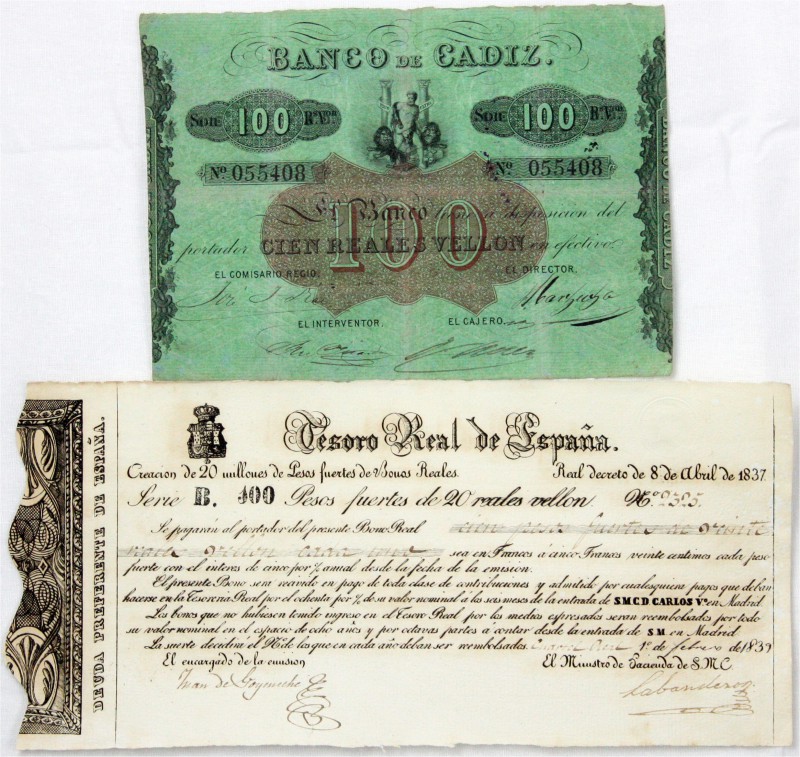 BANCO DE CADIZ.
SON 100 Rs. Von.
SON 100 Rs. Von.
No. 055408
No. 055408
100
El Banco tiene á disposicion del
portador CIEN REALES VELLON en efectivo.
EL COMISARIO REGIO. EL DIRECTOR.
EL INTERVENTOR. EL CAJERO.
BANCO DE CADIZ
DEUDA PREFERENTE DE ESPAÑA.
Tesoro Real de España.
Creacion de 20 millones de Pesos fuertes de Bonos Reales. Real decreto de 8 de Abril de 1837
Série B. 100 Pesos fuertes de 20 reales vellon No. 2325.
Se pagarán al portador del presente Bono Real cien pesos fuertes de veinte
reales vellon cada uno sea en Francos a cinco Francos veinte centimos cada peso
fuerte con el interes de cinco por % anual desde la fecha de la emision.
El presente Bono sera recivido en pago de toda clase de contribuciones y admitido por cualesquiera pagos que deban
hacerse en la Tesoreria Real por el ochenta por % de su valor nominal á los seis meses de la entrada de S M C D CARLOS Vo. en Madrid
Los bonos que no hubiesen tenido ingreso en el Tesoro Real por los medios espresados seran reembolsados por todo
su valor nominal en el espacio de ocho años y por octavas partes á contar desde la entrada de S M. en Madrid
La suerte decedirá el No. de los que en cada año deban ser reembolsados. 1o. de febrero de 1839
El encargado de la emision El Ministro de Hacienda de S. M C
Juan de Goyeneche Labandero